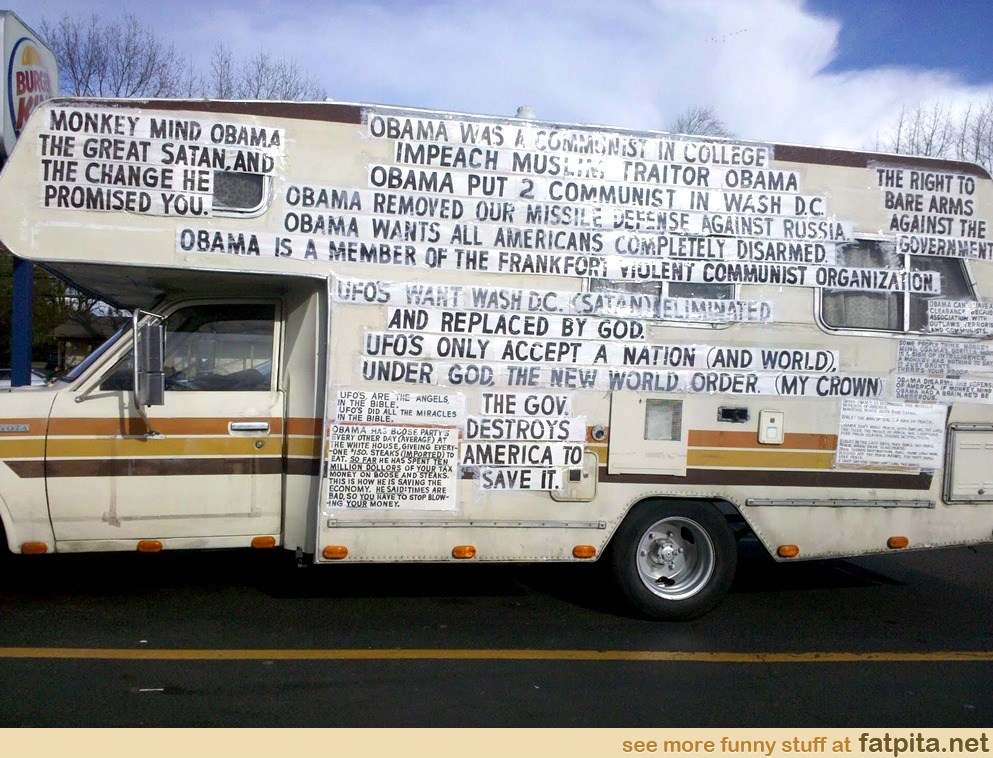 BURGER
KING
MONKEY MIND OBAMA
THE GREAT SATAN, AND
THE CHANGE HE
PROMISED YOU.
OBAMA WAS A COMMUNIST IN COLLEGE
IMPEACH MUSLIM TRAITOR OBAMA
OBAMA PUT 2 COMMUNIST IN WASH D.C.
OBAMA REMOVED OUR MISSILE DEFENSE AGAINST RUSSIA
OBAMA WANTS ALL AMERICANS COMPLETELY DISARMED.
OBAMA IS A MEMBER OF THE FRANKFORT VIOLENT COMMUNIST ORGANIZATION.
THE RIGHT TO
BARE ARMS
AGAINST THE
GOVERNMENT
UFO'S WANT WASH D.C. (SATAN) ELIMINATED
AND REPLACED BY GOD.
UFO'S ONLY ACCEPT A NATION (AND WORLD),
UNDER GOD, THE NEW WORLD ORDER. (MY CROWN)
UFO'S ARE THE ANGELS,
IN THE BIBLE.
UFO'S DID ALL THE MIRACLES
IN THE BIBLE.
THE GOV.
DESTROYS
AMERICA TO
SAVE IT.
OBAMA HAS BOOSE PARTY'S
EVERY OTHER DAY (AVERAGE) AT
THE WHITE HOUSE, GIVING EVERY-
ONE \$150. STEAKS (IMPORTED) TO
EAT. SO FAR HE HAS SPENT TEN
MILLION DOLLARS OF YOUR TAX
MONEY ON BOOSE AND STEAKS.
THIS IS HOW HE IS SAVING THE
ECONOMY. HE SAID: TIMES ARE
BAD, SO YOU HAVE TO STOP BLOW-
ING YOUR MONEY.
ASSOCIATION WITH
OUTLAWS, TERRORISTS
AND COMMUNISTS.
DANGEROUS.
see more funny stuff at fatpita.net